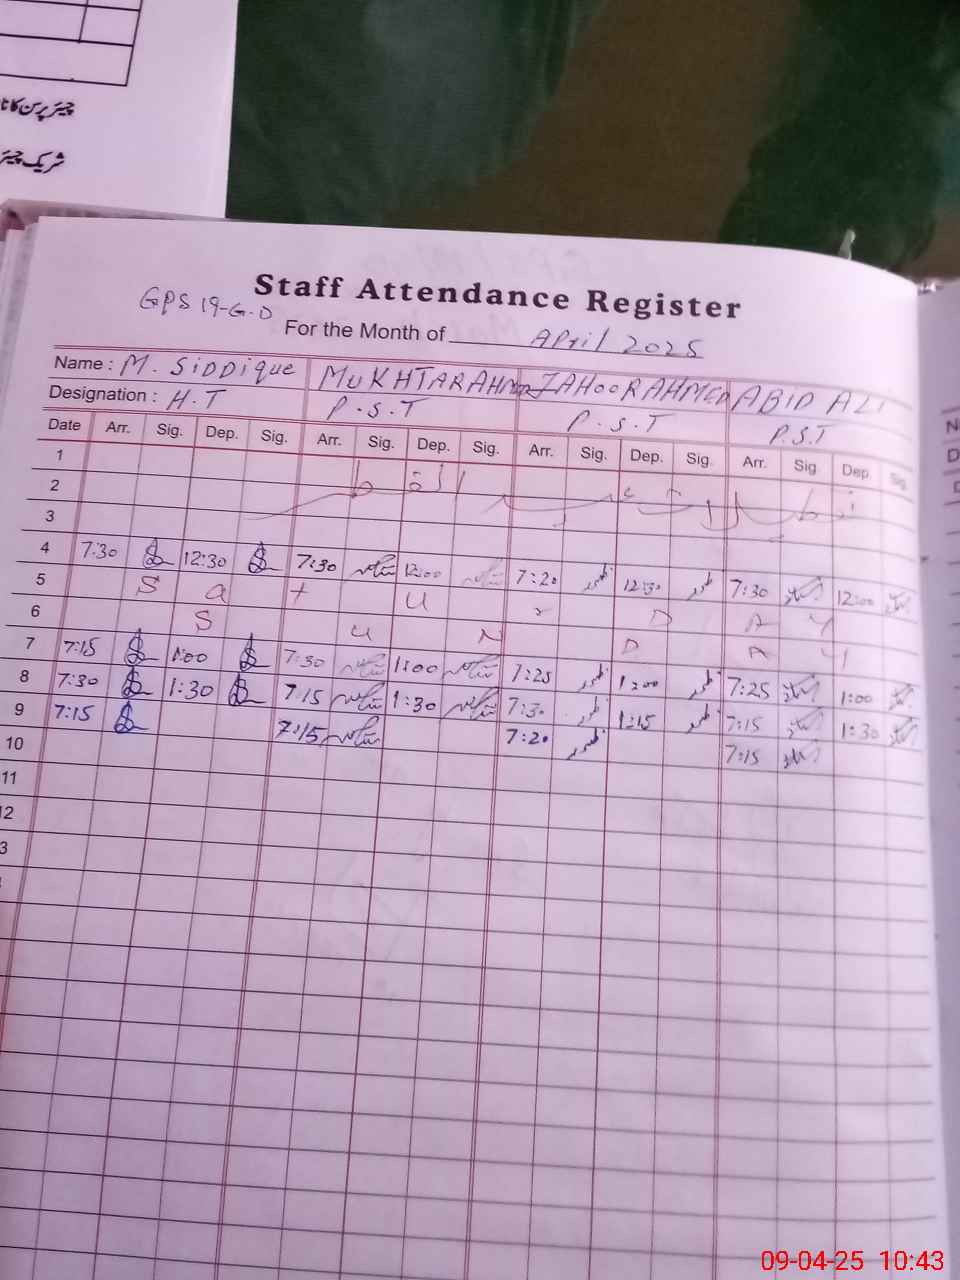 چیئر پرسن کا نا
شریک چیئر
Staff Attendance Register
GPS 19-G.D
For the Month of April 2025
Name : M. SiDDique MUKHTAR AHMD ZAHOOR AHMED ABID ALI
Designation : H.T P.S.T P.S.T P.S.T
Date Arr. Sig. Dep. Sig. Arr. Sig. Dep. Sig. Arr. Sig. Dep. Sig. Arr. Sig Dep. Sig.
1
2
3
4 7:30 12:30 7:30 12:00 7:20 12:30 7:30 12:00
5 S a t u r D A Y
6 S U N D A Y
7 7:15 1:00 7:30 1:00 7:25 1:00 7:25 1:00
8 7:30 1:30 7:15 1:30 7:30 1:15 7:15 1:30
9 7:15 7:15 7:20 7:15
10
11
12
3
N
D
09-04-25 10:43